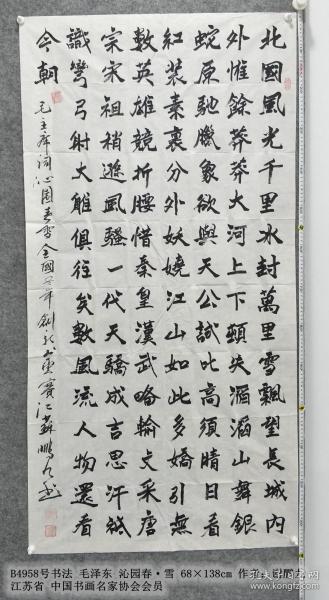 北國風光千里冰封萬里雪飄望長城內
外惟餘莽莽大河上下頓失滔滔山舞銀
蛇原馳臘象欲與天公試比高須晴日看
紅裝素裹分外妖嬈江山如此多嬌引無
數英雄競折腰惜秦皇漢武略輸文采唐
宗宋祖稍遜風騷一代天驕成吉思汗祗
識彎弓射大雕俱往矣數風流人物還看
今朝
毛主席詞沁園春雪全國年賽江蘇鵬
B4958号书法 毛泽东 沁园春·雪 68×138cm 作者：吕鹏
江苏省 中国书画名家协会会员